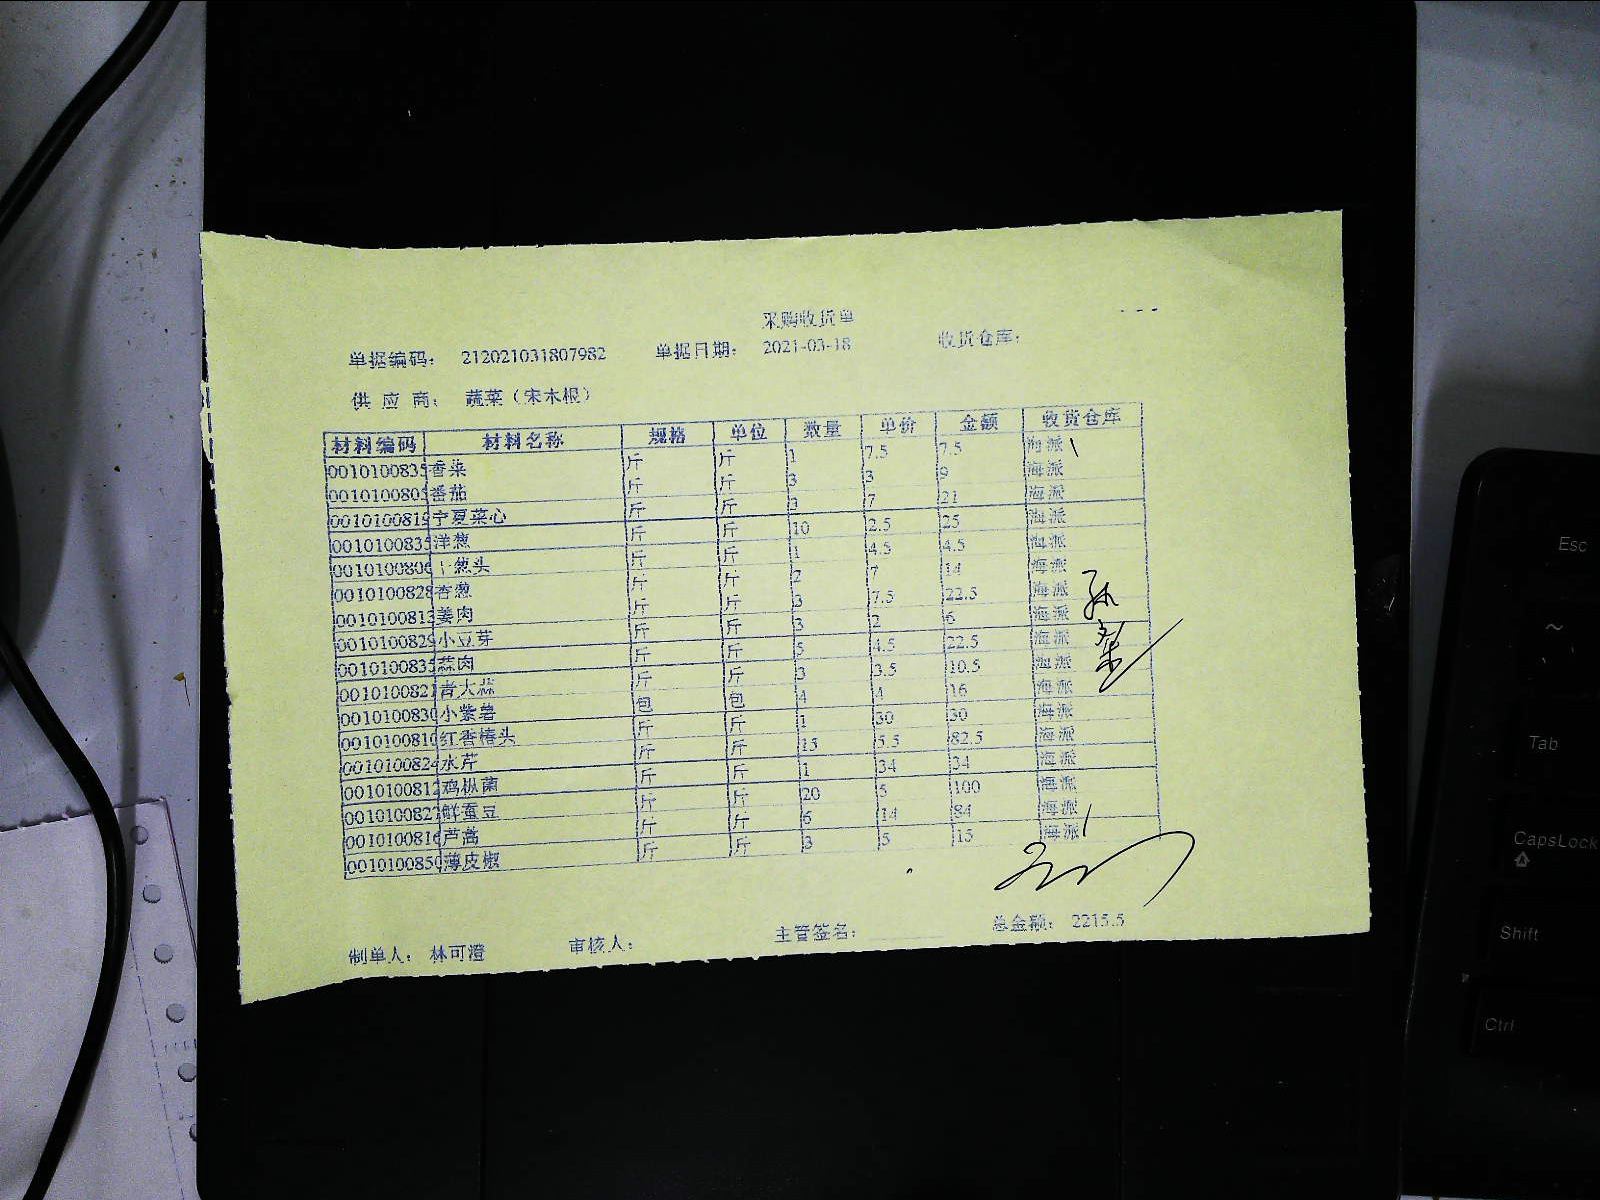 采购收货单
单据编码： 212021031807982 单据日期： 2021-03-18 收货仓库：
供 应 商： 蔬菜（宋木根）
材料编码 材料名称 规格 单位 数量 单价 金额 收货仓库
0010100835 香菜 斤 斤 1 7.5 7.5 海派
0010100805 番茄 斤 斤 3 3 9 海派
0010100819 宁夏菜心 斤 斤 3 7 21 海派
0010100835 洋葱 斤 斤 10 2.5 25 海派
0010100806 葱头 斤 斤 1 4.5 4.5 海派
0010100828 香葱 斤 斤 2 7 14 海派
0010100813 姜肉 斤 斤 3 7.5 22.5 海派
0010100829 小豆芽 斤 斤 3 2 6 海派
0010100835 蒜肉 斤 斤 5 4.5 22.5 海派
0010100821 青大蒜 斤 斤 3 3.5 10.5 海派
0010100830 小紫薯 包 包 4 4 16 海派
0010100810 红香椿头 斤 斤 1 30 30 海派
0010100824 水芹 斤 斤 15 5.5 82.5 海派
0010100812 鸡枞菌 斤 斤 1 34 34 海派
0010100827 鲜蚕豆 斤 斤 20 5 100 海派
0010100816 芦蒿 斤 斤 6 14 84 海派
0010100850 薄皮椒 斤 斤 3 5 15 海派
制单人： 林可澄 审核人： 主管签名： 总金额： 2215.5
Esc
~
Tab
CapsLock
Shift
Ctrl